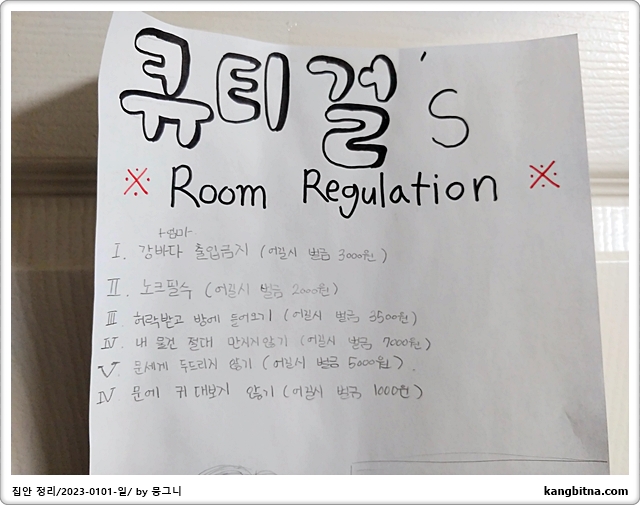 큐티걸's
※ Room Regulation ※
+엄마
Ⅰ. 강바다 출입금지 (어길시 벌금 3000원)
Ⅱ. 노크필수 (어길시 벌금 2000원)
Ⅲ 허락받고 방에 들어오기 (어길시 벌금 3500원)
Ⅳ 내 물건 절대 만지지않기 (어길시 벌금 7000원)
Ⅴ 문세게 두드리지 않기 (어길시 벌금 5000원).
Ⅳ 문에 귀 대보지 않기 (어길시 벌금 1000원)
집안 정리/2023-0101-일/ by 뭉그니
kangbitna.com